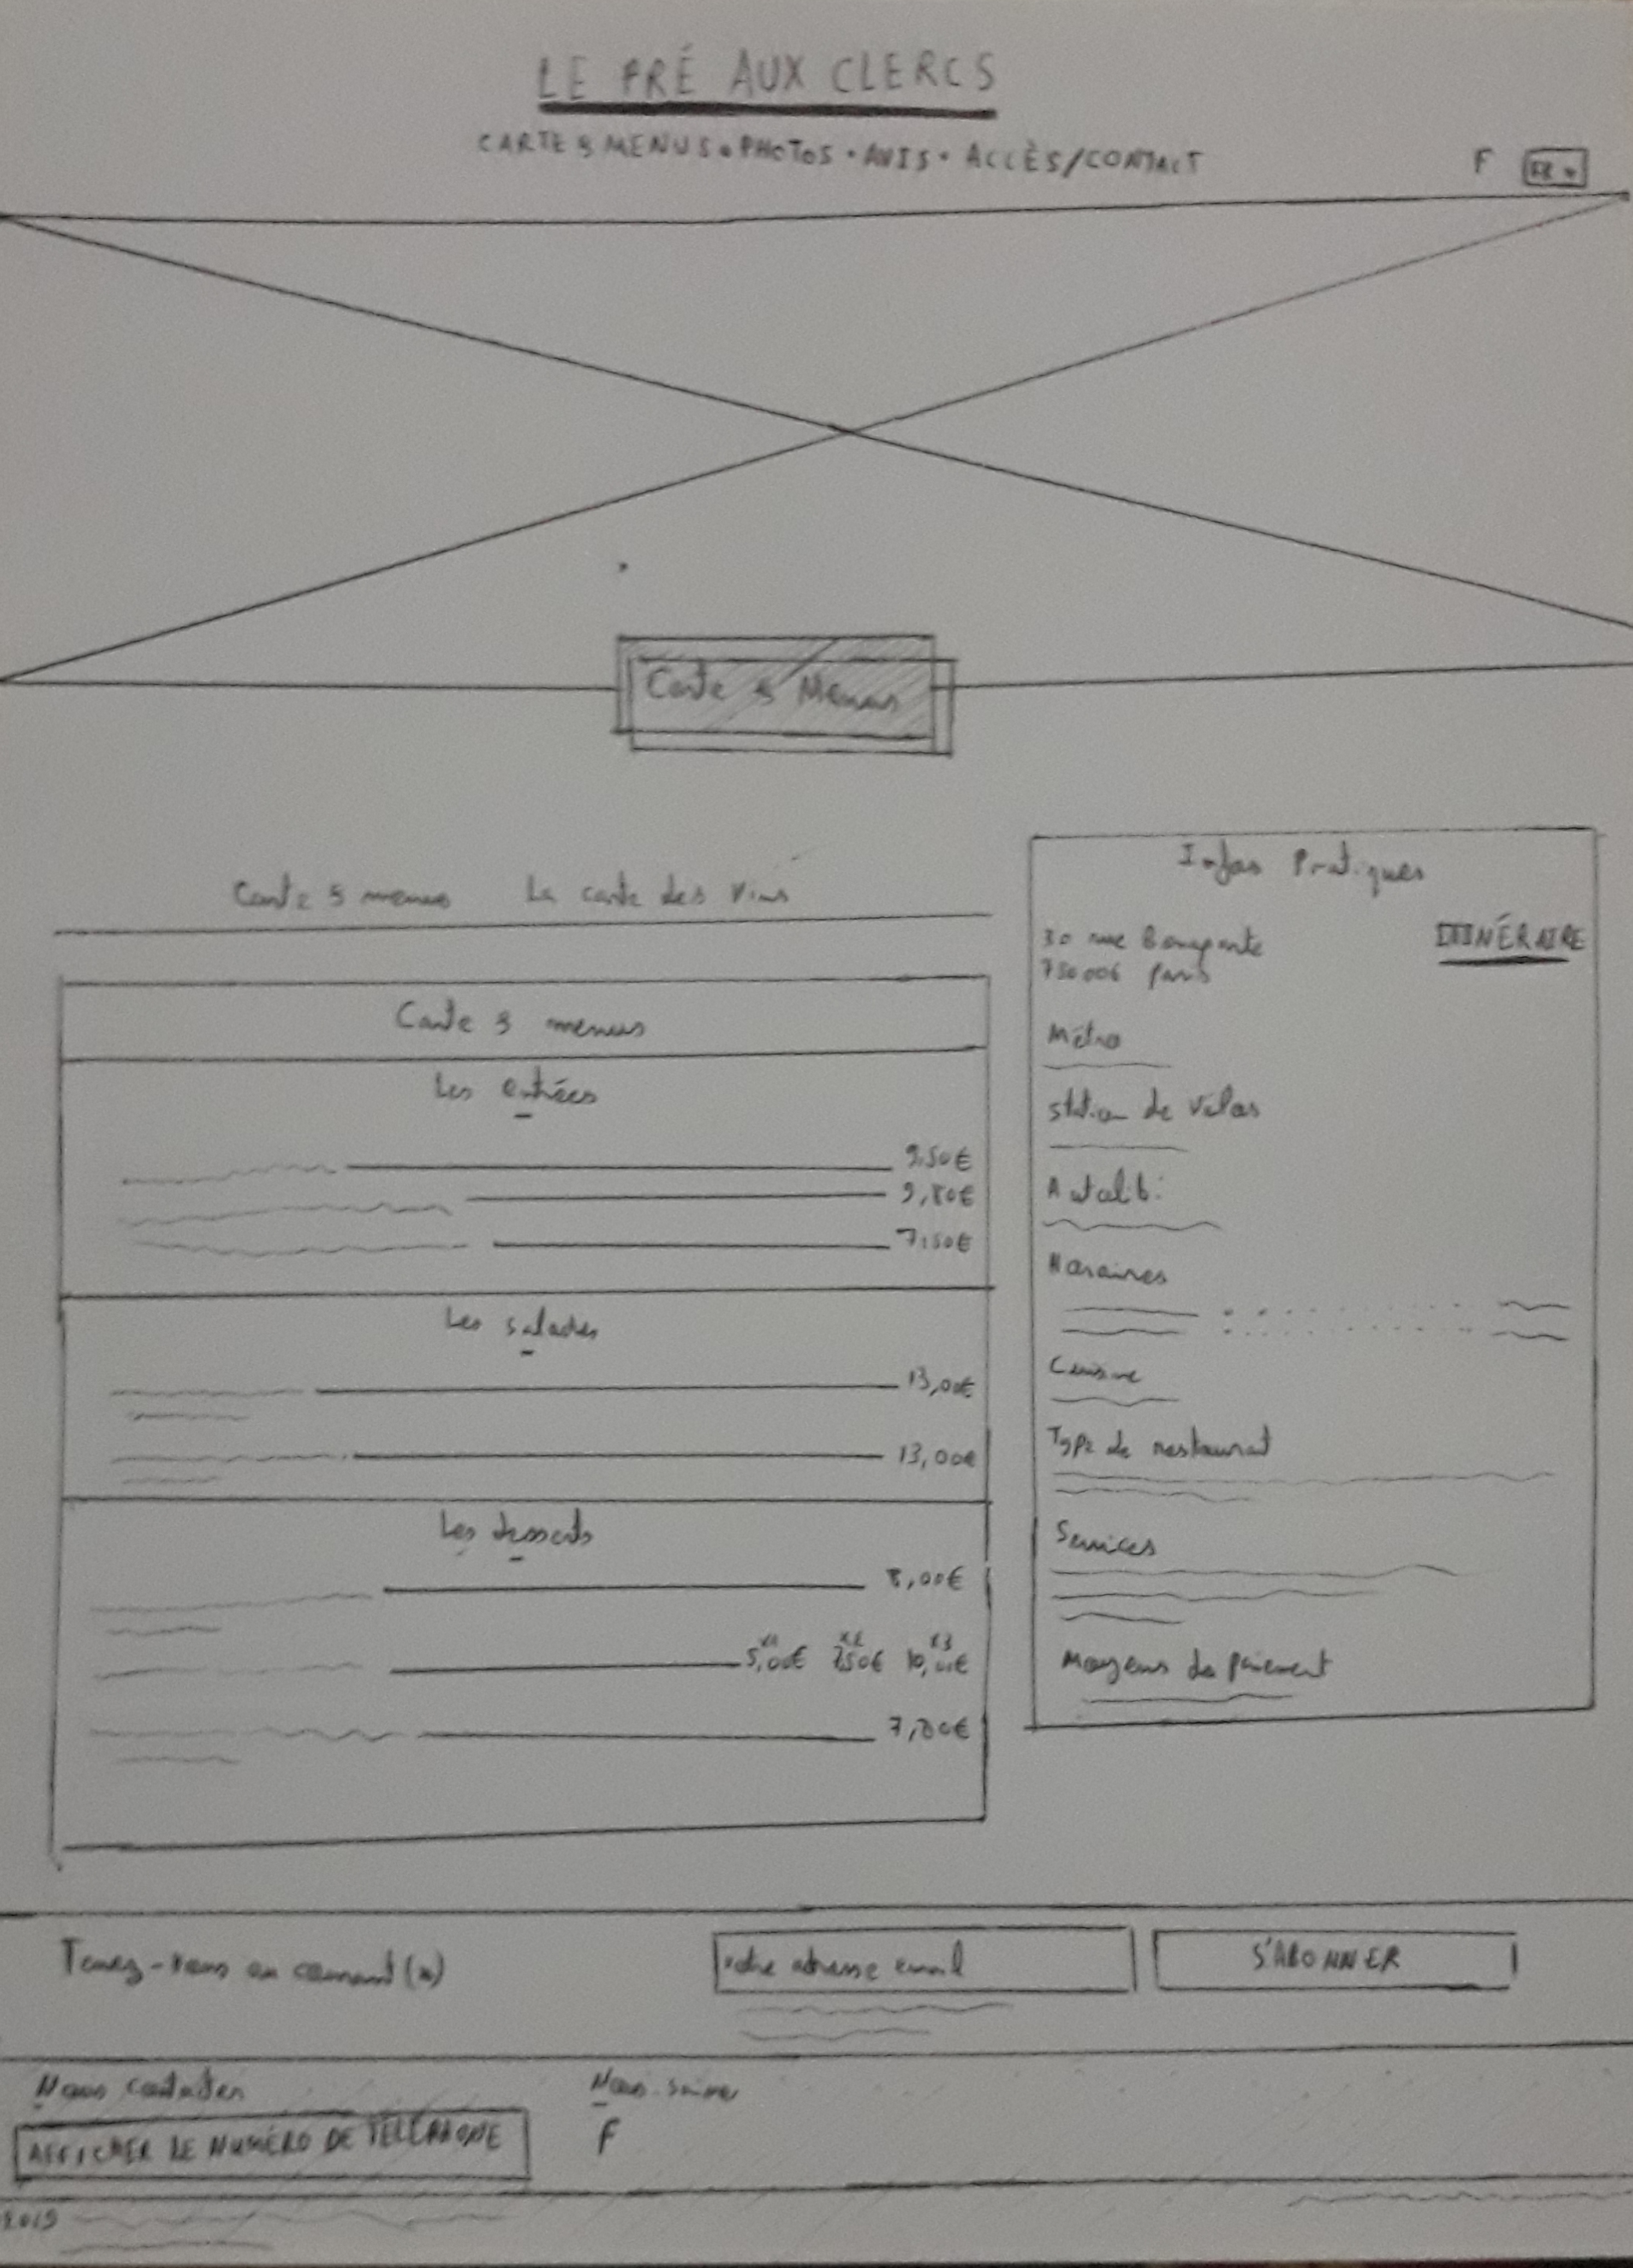 LE PRÉ AUX CLERCS
CARTE & MENUS • PHOTOS • AVIS • ACCÈS/CONTACT
F
FR
Carte & Menus
Carte & menus
La carte des Vins
Carte & menus
Les entrées
9,50€
9,80€
7,50€
Les salades
13,00€
13,00€
Les desserts
8,00€
x1 x2 x3
5,00€ 7,50€ 10,00€
7,80€
Infos Pratiques
30 rue Bonaparte
ITINÉRAIRE
750006 Paris
Métro
Station de Vélos
Autolib'
Horaires
Cuisine
Type de restaurant
Services
Moyens de paiement
Tenez-vous au courant (*)
votre adresse email
S'ABONNER
Nous contacter
Nous suivre
AFFICHER LE NUMÉRO DE TÉLÉPHONE
F
2019